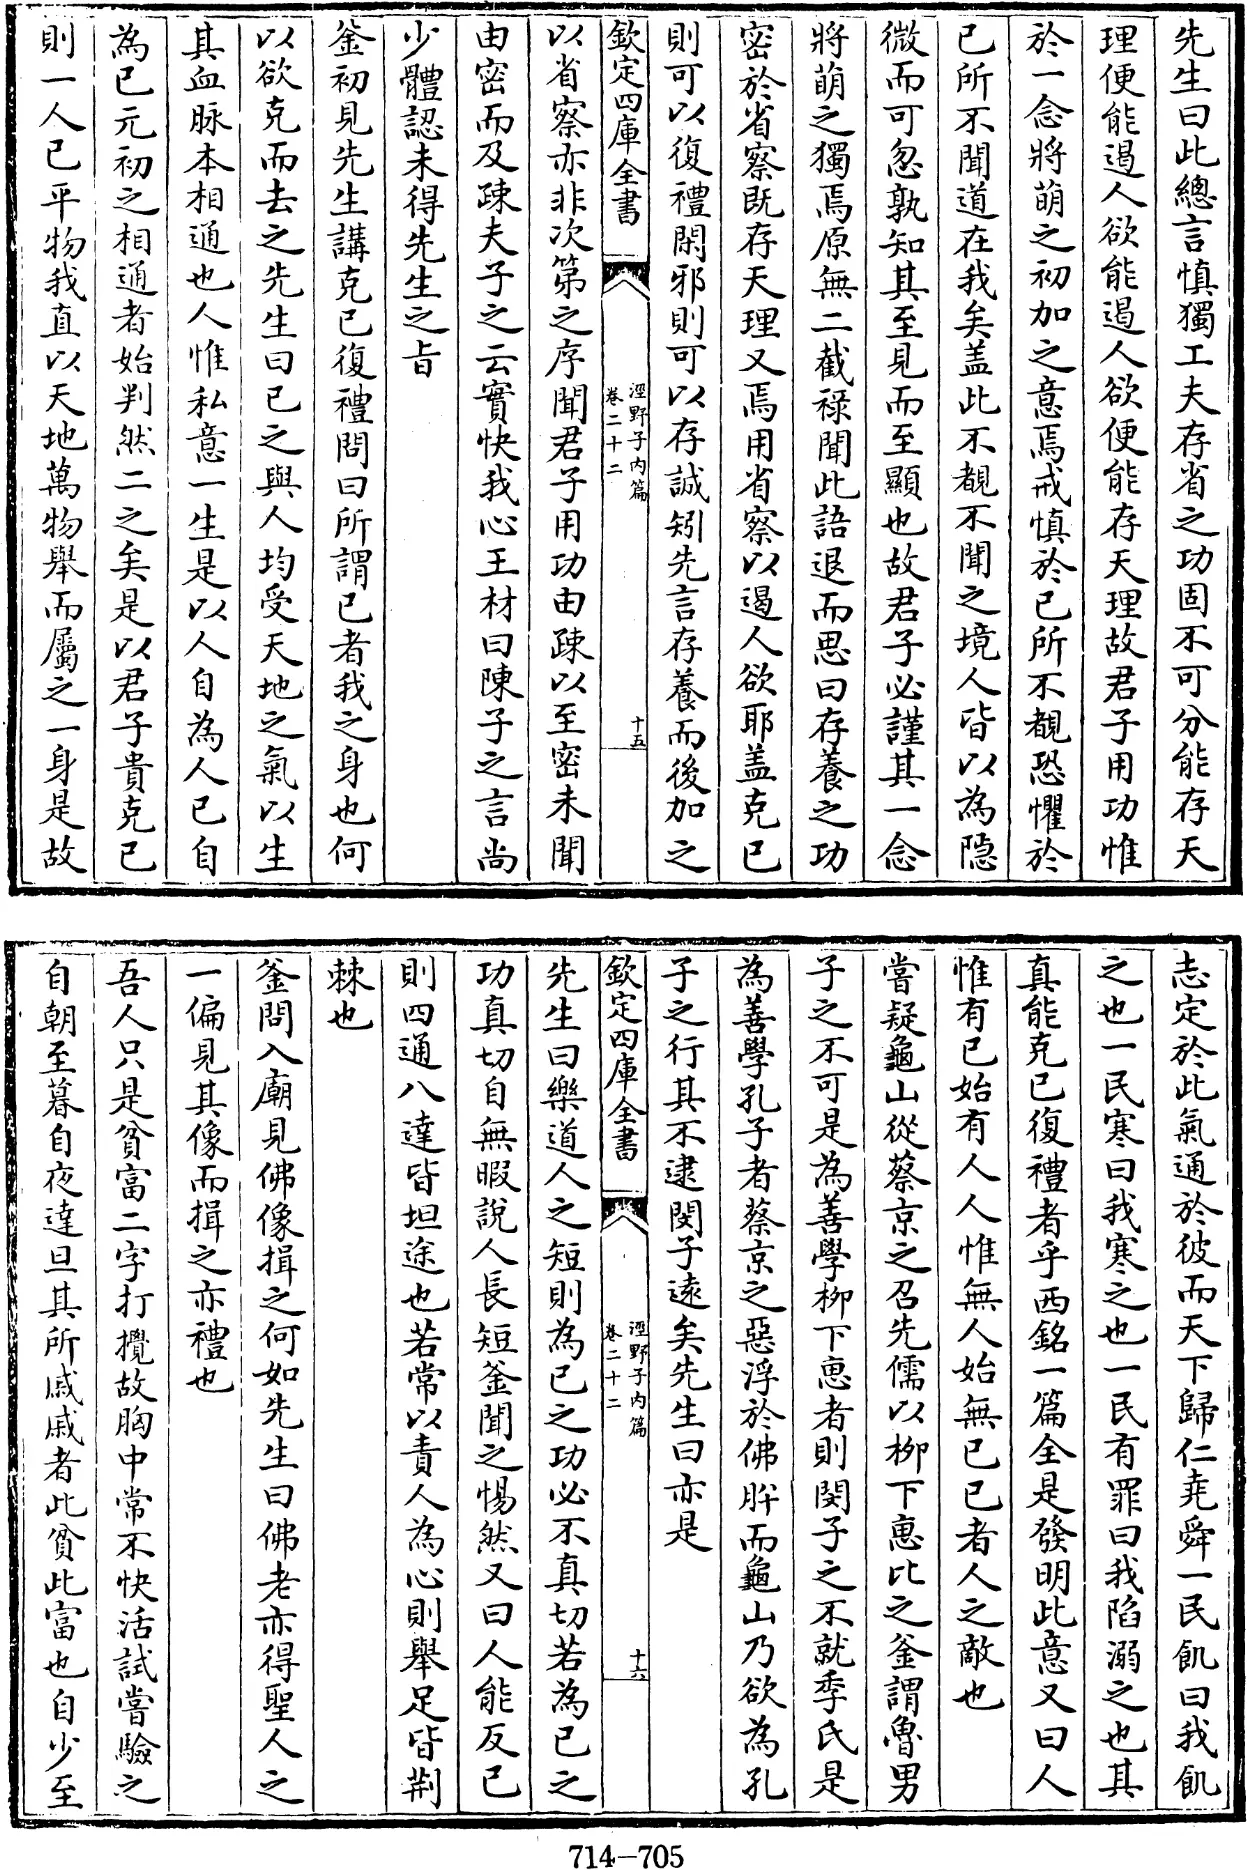 先生曰此總言慎獨工夫存省之功固不可分能存天
理便能遏人欲能遏人欲便能存天理故君子用功惟
於一念將萌之初加之意焉戒慎於已所不覩恐懼於
已所不聞道在我矣盖此不覩不聞之境人皆以為隠
微而可忽孰知其至見而至顯也故君子必謹其一念
將萌之獨焉原無二截祿聞此語退而思曰存養之功
密於省察既存天理又焉用省察以遏人欲耶盖克已
則可以復禮閑邪則可以存誠矧先言存養而後加之
欽定四庫全書
涇野子内篇
卷二十二
十五
以省察亦非次第之序聞君子用功由疎以至密未聞
由密而及疎夫子之云實快我心王材曰陳子之言尚
少體認未得先生之㫖
釜初見先生講克已復禮問曰所謂已者我之身也何
以欲克而去之先生曰已之與人均受天地之氣以生
其血脉本相通也人惟私意一生是以人自為人已自
為已元初之相通者始判然二之矣是以君子貴克已
則一人已平物我直以天地萬物舉而屬之一身是故
志定於此氣通於彼而天下歸仁堯舜一民飢曰我飢
之也一民寒曰我寒之也一民有罪曰我陷溺之也其
真能克已復禮者乎西銘一篇全是發明此意又曰人
惟有已始有人人惟無人始無已已者人之敵也
嘗疑龜山從蔡京之召先儒以柳下惠比之釜謂魯男
子之不可是為善學柳下惠者則閔子之不就季氏是
為善學孔子者蔡京之惡浮於佛肸而龜山乃欲為孔
子之行其不逮閔子遠矣先生曰亦是
欽定四庫全書
涇野子内篇
卷二十二
十六
先生曰樂道人之短則為已之功必不真切若為已之
功真切自無暇說人長短釜聞之惕然又曰人能反已
則四通八達皆坦途也若常以責人為心則舉足皆荆
棘也
釜問入廟見佛像揖之何如先生曰佛老亦得聖人之
一偏見其像而揖之亦禮也
吾人只是貧富二字打攪故胸中常不快活試嘗驗之
自朝至暮自夜達旦其所戚戚者此貧此富也自少至
714-705